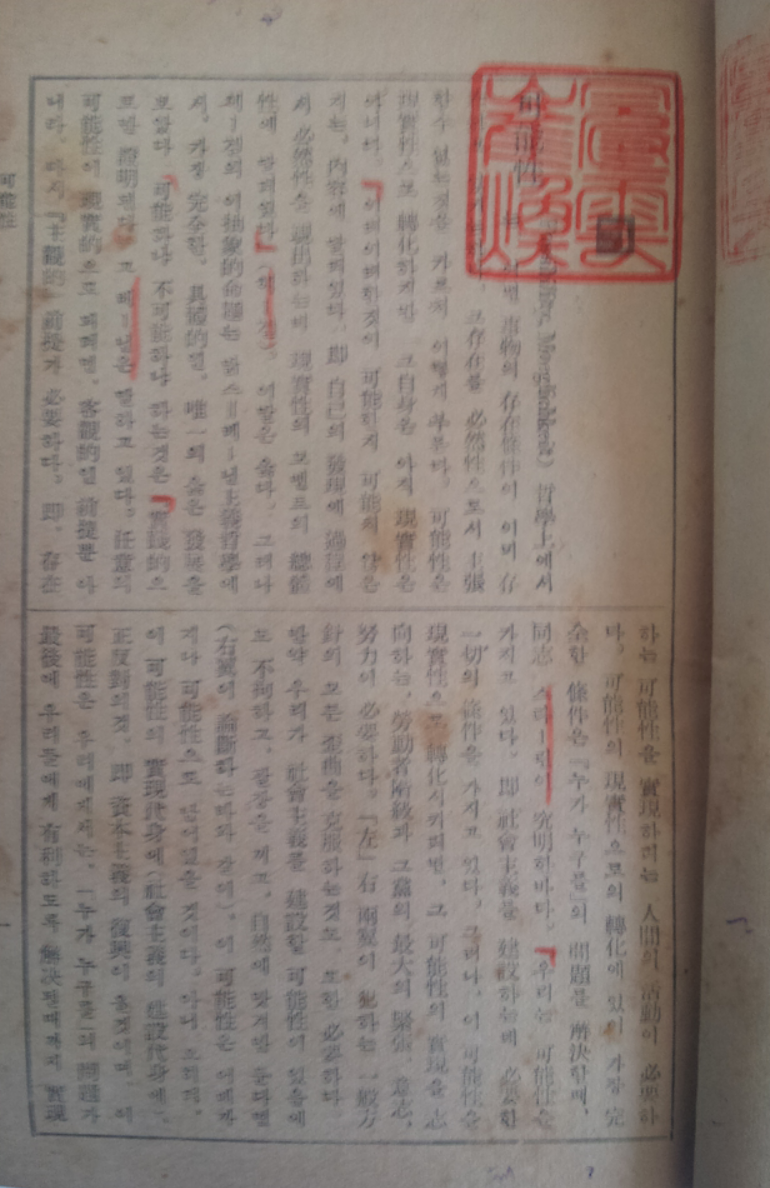 可能性 Möglichkeit) 哲學上에서
는 어떤 事物의 存在條件이 이미 存
그存在를 必然性으로서 主張
할수 없는것을 가르켜 이렇게 부른다. 可能性은
現實性으로 轉化하지만 그自身은 아직 現實性은
아니다. 『어떠어떠한것이 可能한지 可能의 않은
지는, 內容에 달려있다. 即 自己의 發現에 過程에
서 必然性을 現出하는데 現實性의 모멘트의 總體
性에 달려있다』(헤-겔). 이말은 옳다. 그러나
헤-겔의 이抽象的命題는 맑스-레-닌主義哲學에
서, 가장 完全한, 具體的인, 唯一의 옳은 發展을
보았다 可能하냐 不可能하냐 하는것은 『實踐的으
로만 證明된다』고 레-닌은 말하고 있다. 任意의
可能性이 現實的으로 되려면, 客觀的인 前提뿐 아
니라, 다시 『主觀的』前提가 必要하다. 即, 存在
하는 可能性을 實現하려는 人間의 活動이 必要하
다. 可能性의 現實性으로의 轉化에 있어 가장 完
全한 條件은『누가 누구를』의 問題를 解決할때,
同志 스타-린이 究明하바다. 『우리는 可能性을
가지고 있다. 即 社會主義를 建設하는데 必要한
一切의 條件을 가지고 있다. 그러나, 이 可能性을
現實性으로 轉化시키려면, 그 可能性의 實現을 志
向하는, 勞動者階級과 그黨의 最大의 緊張, 意志,
努力이 必要하다. 『左』右 兩翼의 犯하는 一般方
針의 모든 歪曲을 克服하는것도, 또한 必要하다
만약 우리가 社會主義를 建設할 可能性이 있음에
도 不拘하고, 팔장을 끼고, 自然에 맞겨만 둔다면
(右翼이 論斷하는바와 같이), 이 可能性은 어데까
지나 可能性으로 남어있을 것이다. 아니 도리혀,
이 可能性의 實現代身에(社會主義의 建設代身에),
正反對의것, 即 資本主義의 復興이 올것이며, 이
可能性은 우리에게서는, 「누가 누구를」의 問題가
最後에 우리들에게 有利하도록 解決될때까지 實現
可能性